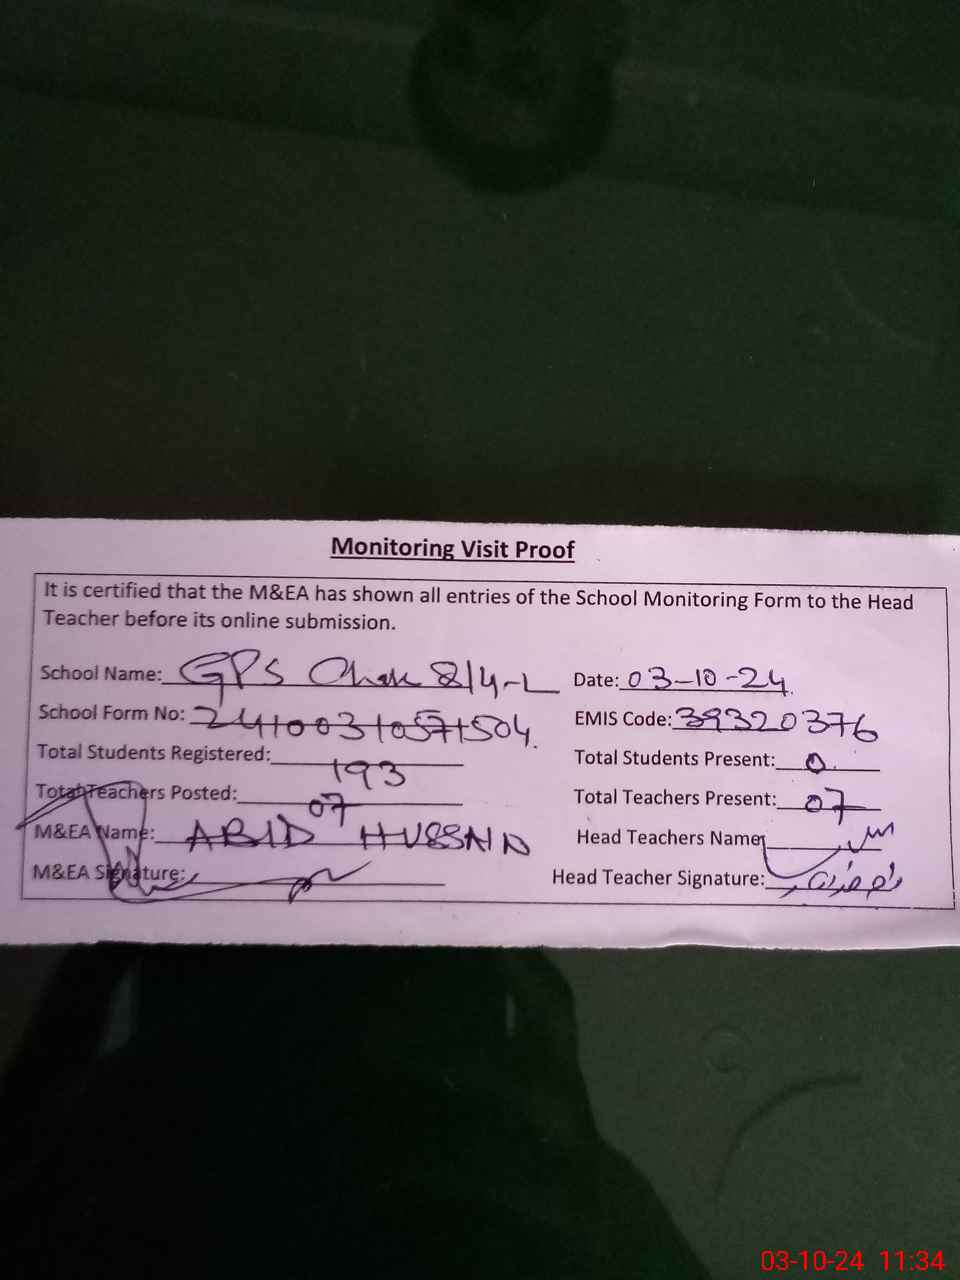 Monitoring Visit Proof
It is certified that the M&EA has shown all entries of the School Monitoring Form to the Head
Teacher before its online submission.
School Name: GPS Chak 8/4-L Date: 03-10-24
School Form No: 24100310571504 EMIS Code: 39320376
Total Students Registered: 193 Total Students Present: 0
Total Teachers Posted: 07 Total Teachers Present: 07
M&EA Name: ABID HUSSAIN Head Teachers Name
M&EA Signature: Head Teacher Signature:
03-10-24 11:34